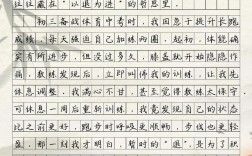 往往藏在“以退为进”的智慧里。
初三备战体育中考时，我因急于提升长跑
成绩，每天强迫自己加练两圈。起初，体能确
实有所进步，但没过多久，膝盖就开始隐隐作
痛。教练发现后，立即叫停我的训练，让我先
休息调整。我满心不甘，甚至觉得教练太保守。
可休息一周后重新训练，我竟发现自己的状态
比之前更好，跑步时呼吸更顺畅，步伐也更有
力。那一刻我才明白，暂时的“退”，是为了积